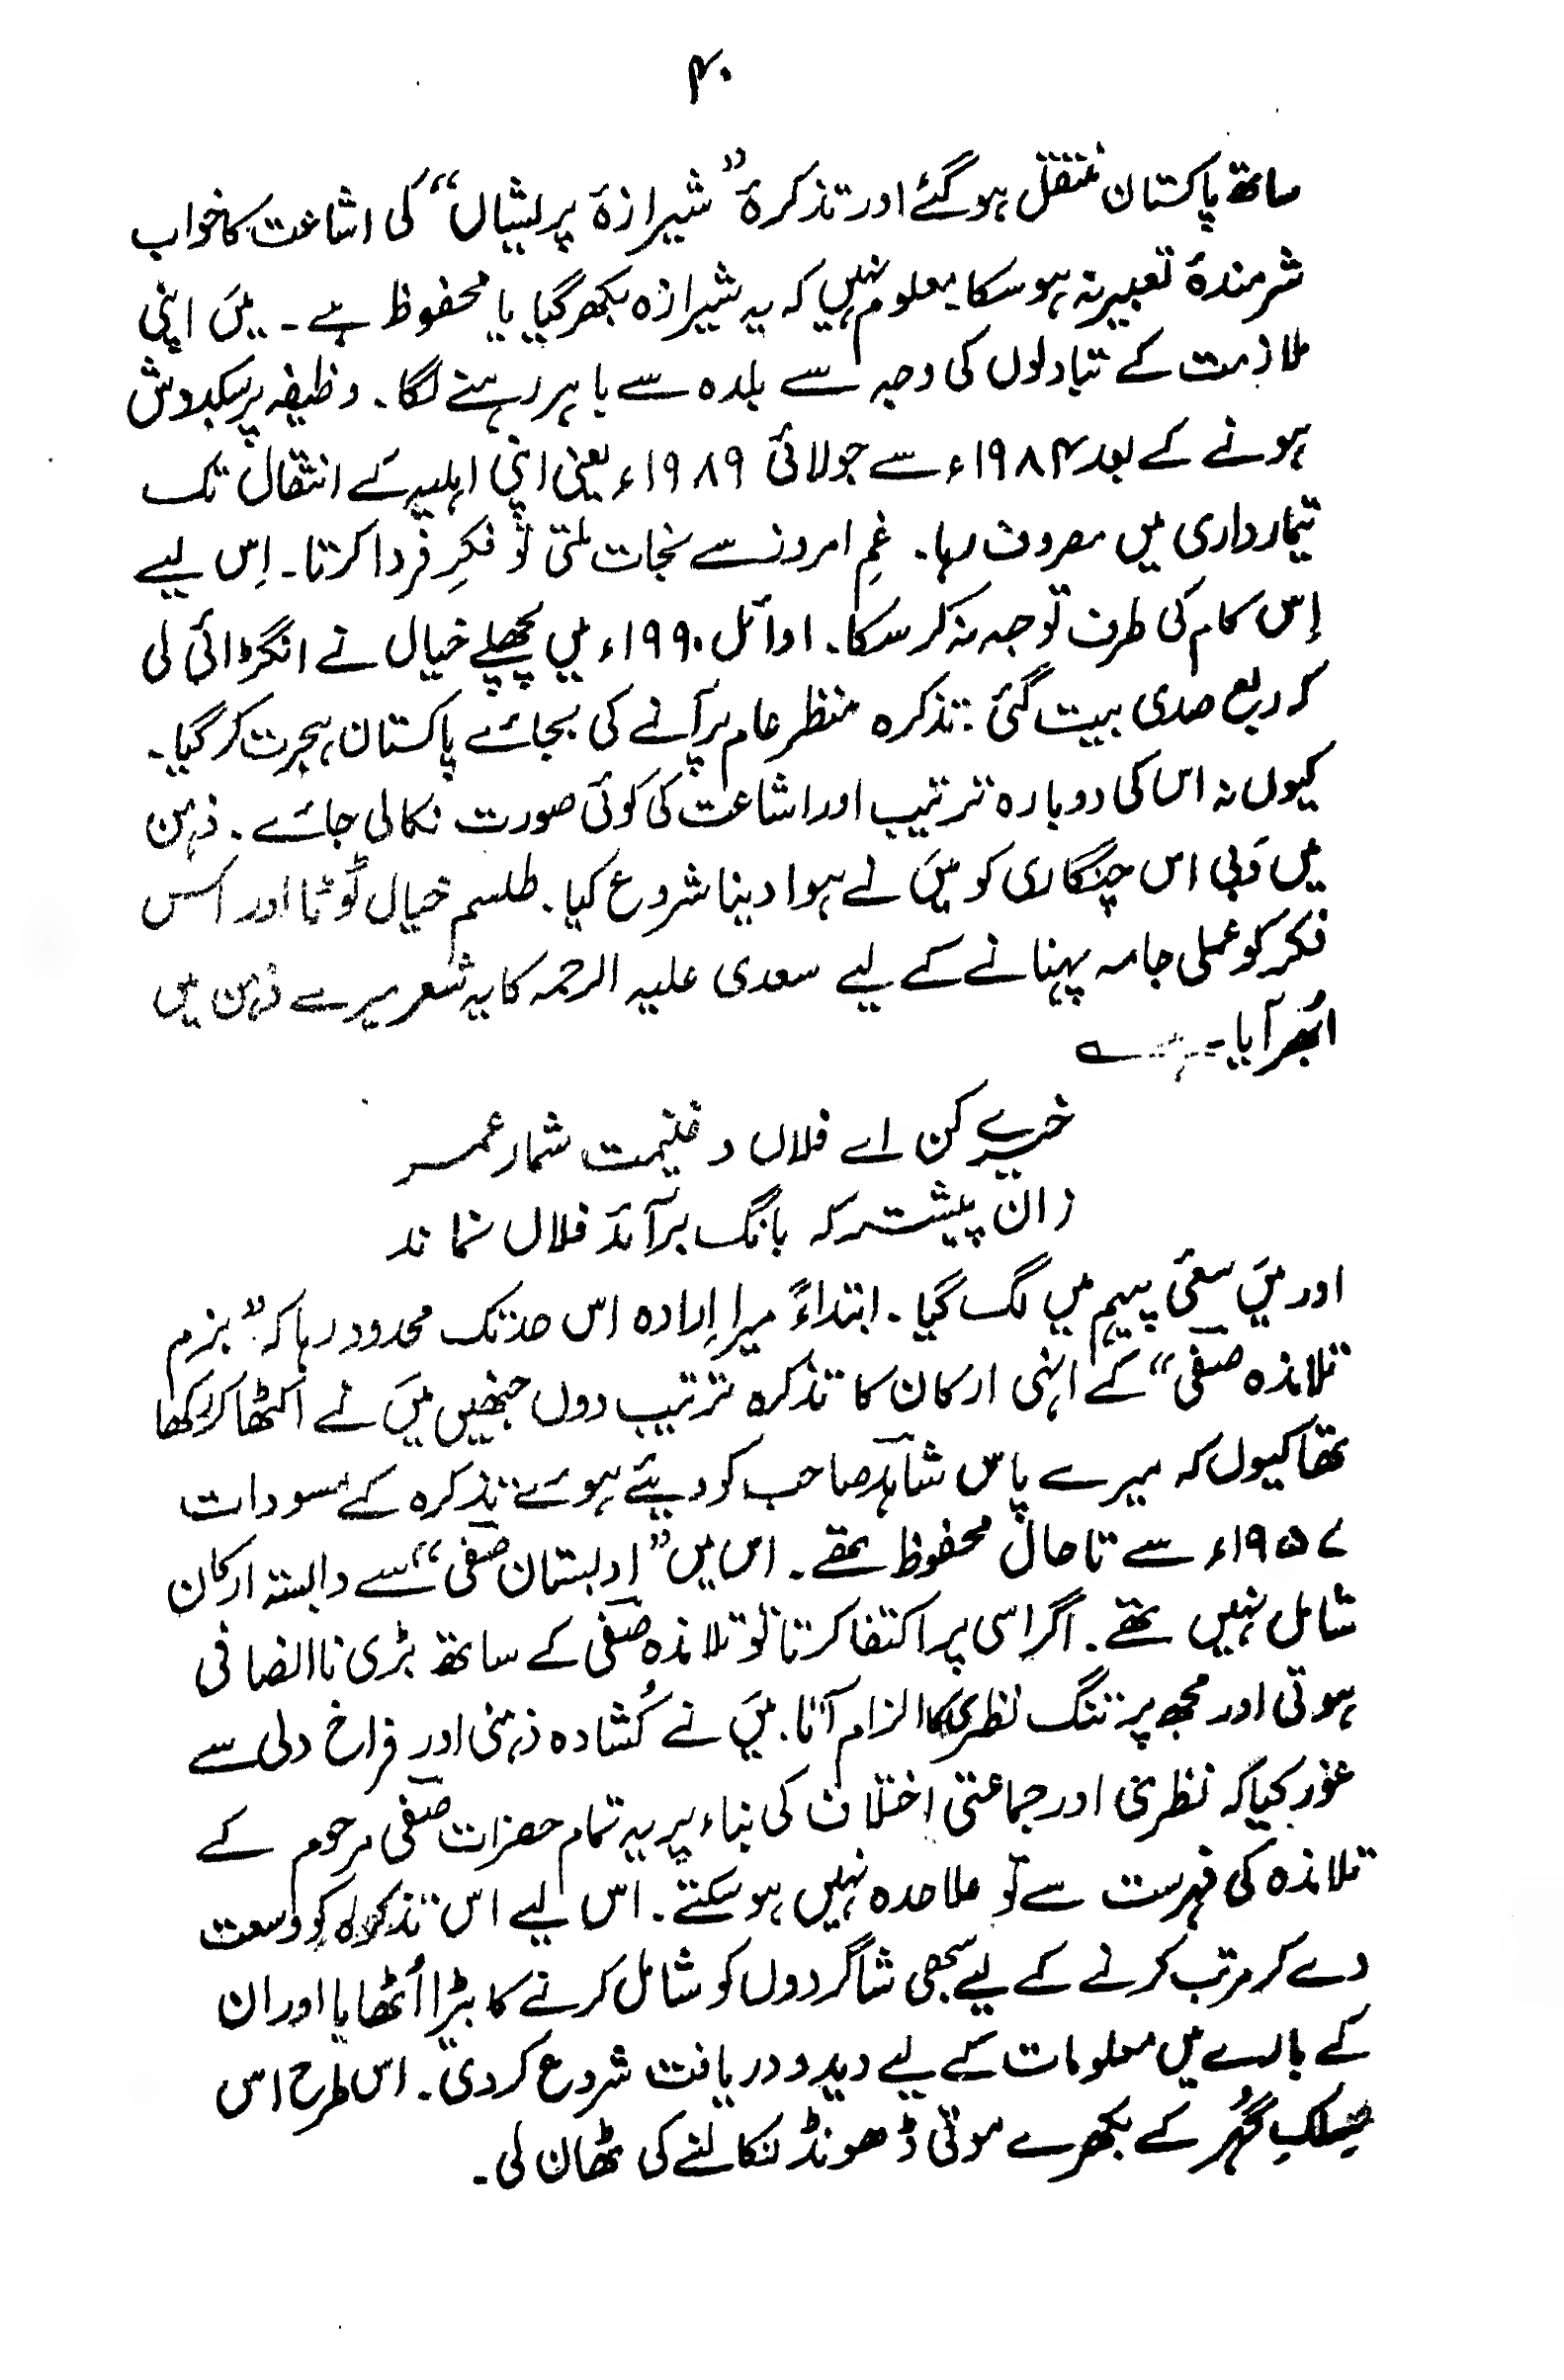 ۴۰
ساتھ پاکستان منتقل ہوگئے اور تذکرۂ ”شیرازۂ پریشاں“ کی اشاعت کا خواب
شرمندۂ تعبیر نہ ہوسکا۔ معلوم نہیں کہ یہ شیرازہ بکھر گیا یا محفوظ ہے۔ میں اپنی
ملازمت کے تبادلوں کی وجہ سے بلدہ سے باہر رہنے لگا۔ وظیفہ پر سبکدوش
ہونے کے بعد ۱۹۸۴ء سے جولائی ۱۹۸۹ء یعنی اپنی اہلیہ کے انتقال تک
تیمارداری میں مصروف رہا۔ غمِ امروز سے نجات ملتی تو فکرِ فردا کرتا۔ اِس لیے
اِس کام کی طرف توجہ نہ کرسکا۔ اوائل ۱۹۹۰ء میں پچھلے خیال نے انگڑائی لی
کہ ربع صدی بیت گئی؛ تذکرہ منظر عام پر آنے کی بجائے پاکستان ہجرت کر گیا۔
کیوں نہ اس کی دوبارہ ترتیب اور اشاعت کی کوئی صورت نکالی جائے۔ ذہن
میں دَبی اس چنگاری کو میں نے ہوا دینا شروع کیا۔ طلسم خیال ٹوٹا اور اس
فکر کو عملی جامہ پہنانے کے لیے سعدی علیہ الرحمہ کا یہ شعر میرے ذہن میں
اُبھر آیا۔ ؎
خیرے کن اے فلاں و غنیمت شمار عمر
زان پیشتر کہ بانگ برآید فلاں نماند
اور میں سعئ پیہم میں لگ گیا۔ ابتداءً میرا اِرادہ اس حد تک محدود رہا کہ ”بزم
تلامذہ صفی“ کے انہی ارکان کا تذکرہ ترتیب دوں جنھیں میں نے اکٹھا کر رکھا
تھا کیوں کہ میرے پاس شاہد صاحب کو دیئے ہوئے تذکرہ کے مسودات
۱۹۵۷ء سے تا حال محفوظ تھے۔ اس میں ”ادبستان صفی“ سے وابستہ ارکان
شامل نہیں تھے۔ اگر اسی پر اکتفا کرتا تو تلامذہ صفی کے ساتھ بڑی ناانصافی
ہوتی اور مجھ پر تنگ نظری کا الزام آتا۔ میں نے کُشادہ ذہنی اور فراخ دلی سے
غور کیا کہ نظری اور جماعتی اختلاف کی بناء پر یہ تمام حضرات صفی مرحوم کے
تلامذہ کی فہرست سے تو علاحدہ نہیں ہوسکتے۔ اس لیے اس تذکرہ کو وسعت
دے کر مرتب کرنے کے لیے سبھی شاگردوں کو شامل کرنے کا بیڑا اُٹھایا اور ان
کے بارے میں معلومات کے لیے دید و دریافت شروع کردی۔ اس طرح اس
سِلکِ گُہر کے بکھرے موتی ڈھونڈ نکالنے کی ٹھان لی۔